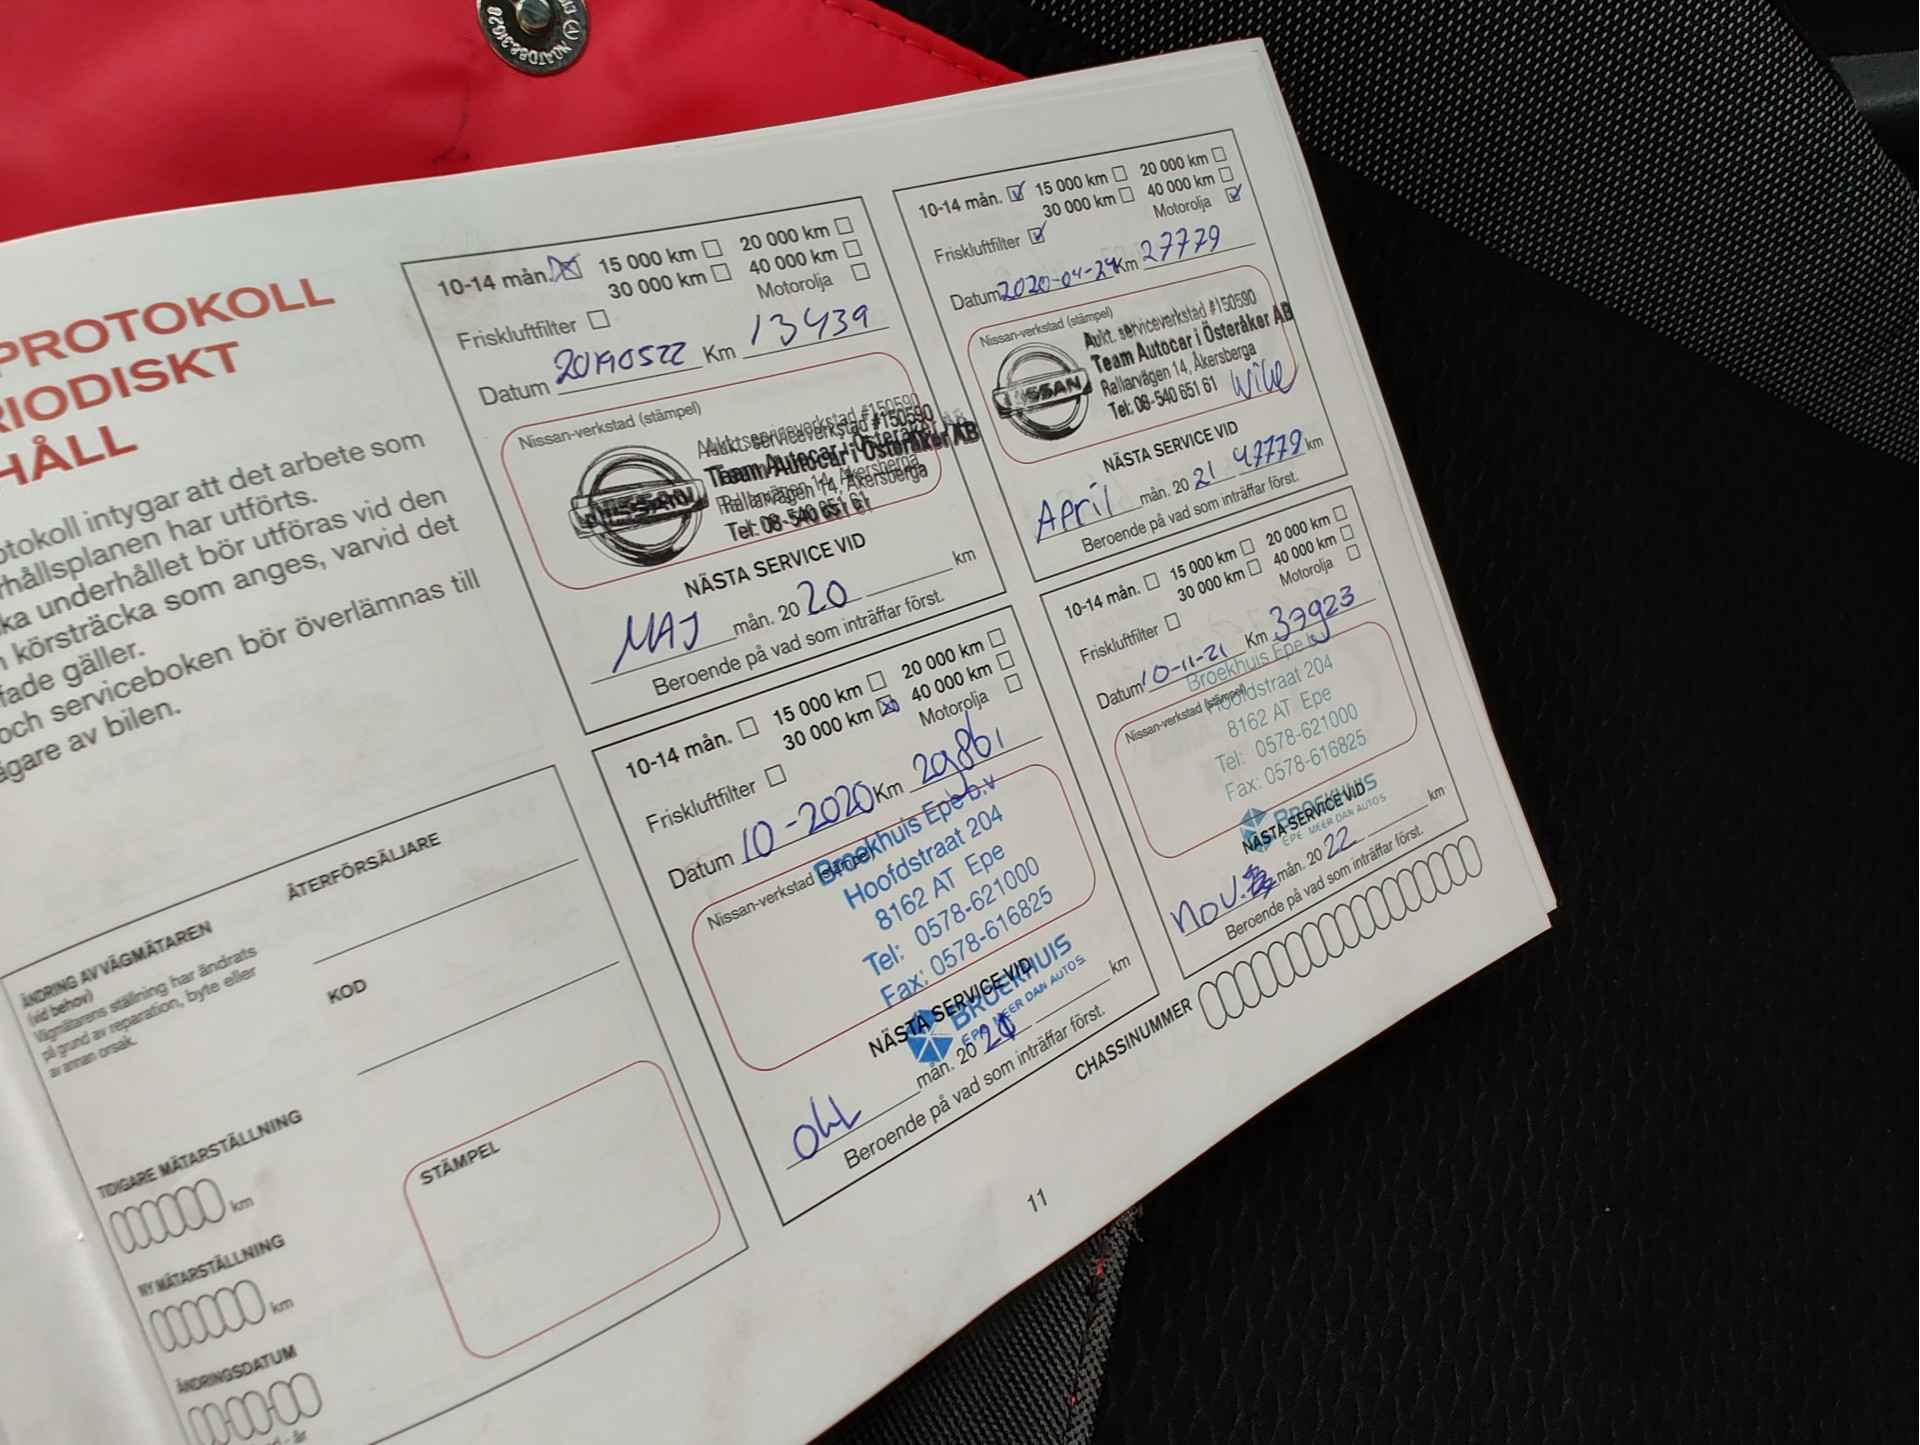 PROTOKOLL
RIODISKT
HÅLL
otokoll intygar att det arbete som
rhållsplanen har utförts.
ka underhållet bör utföras vid den
n körsträcka som anges, varvid det
fade gäller.
och serviceboken bör överlämnas till
ägare av bilen.
ÄNDRING AV VÄGMÄTAREN
(vid behov)
Vägmätarens ställning har ändrats
på grund av reparation, byte eller
av annan orsak.
ÅTERFÖRSÄLJARE
KOD
TIDIGARE MÄTARSTÄLLNING
km
NY MÄTARSTÄLLNING
km
ÄNDRINGSDATUM
år
STÄMPEL
10-14 mån. 15 000 km 20 000 km
30 000 km 40 000 km
Friskluftfilter Motorolja
Datum 20190522 Km 13439
Nissan-verkstad (stämpel)
NISSAN
Aukt. serviceverkstad #150590
Team Autocar i Österåker AB
Rallarvägen 14, Åkersberga
Tel: 08-540 651 61
NÄSTA SERVICE VID
MAJ mån. 20 20 km
Beroende på vad som inträffar först.
10-14 mån. 15 000 km 20 000 km
30 000 km 40 000 km
Friskluftfilter Motorolja
Datum 10-2020 Km 29861
Nissan-verkstad (stämpel)
Broekhuis Epe b.v
Hoofdstraat 204
8162 AT Epe
Tel: 0578-621000
Fax: 0578-616825
BROEKHUIS
EPE MEER DAN AUTOS
NÄSTA SERVICE VID
okt mån. 20 21 km
Beroende på vad som inträffar först.
10-14 mån. 15 000 km 20 000 km
30 000 km 40 000 km
Friskluftfilter Motorolja
Datum 2020-04-24 Km 27779
Nissan-verkstad (stämpel)
NISSAN
Aukt. serviceverkstad #150590
Team Autocar i Österåker AB
Rallarvägen 14, Åkersberga
Tel: 08-540 651 61
NÄSTA SERVICE VID
April mån. 20 21 47779 km
Beroende på vad som inträffar först.
10-14 mån. 15 000 km 20 000 km
30 000 km 40 000 km
Friskluftfilter Motorolja
Datum 10-11-21 Km 37923
Nissan-verkstad (stämpel)
Broekhuis Epe b.v
Hoofdstraat 204
8162 AT Epe
Tel: 0578-621000
Fax: 0578-616825
BROEKHUIS
EPE MEER DAN AUTOS
NÄSTA SERVICE VID
nov. mån. 20 22 km
Beroende på vad som inträffar först.
CHASSINUMMER
11